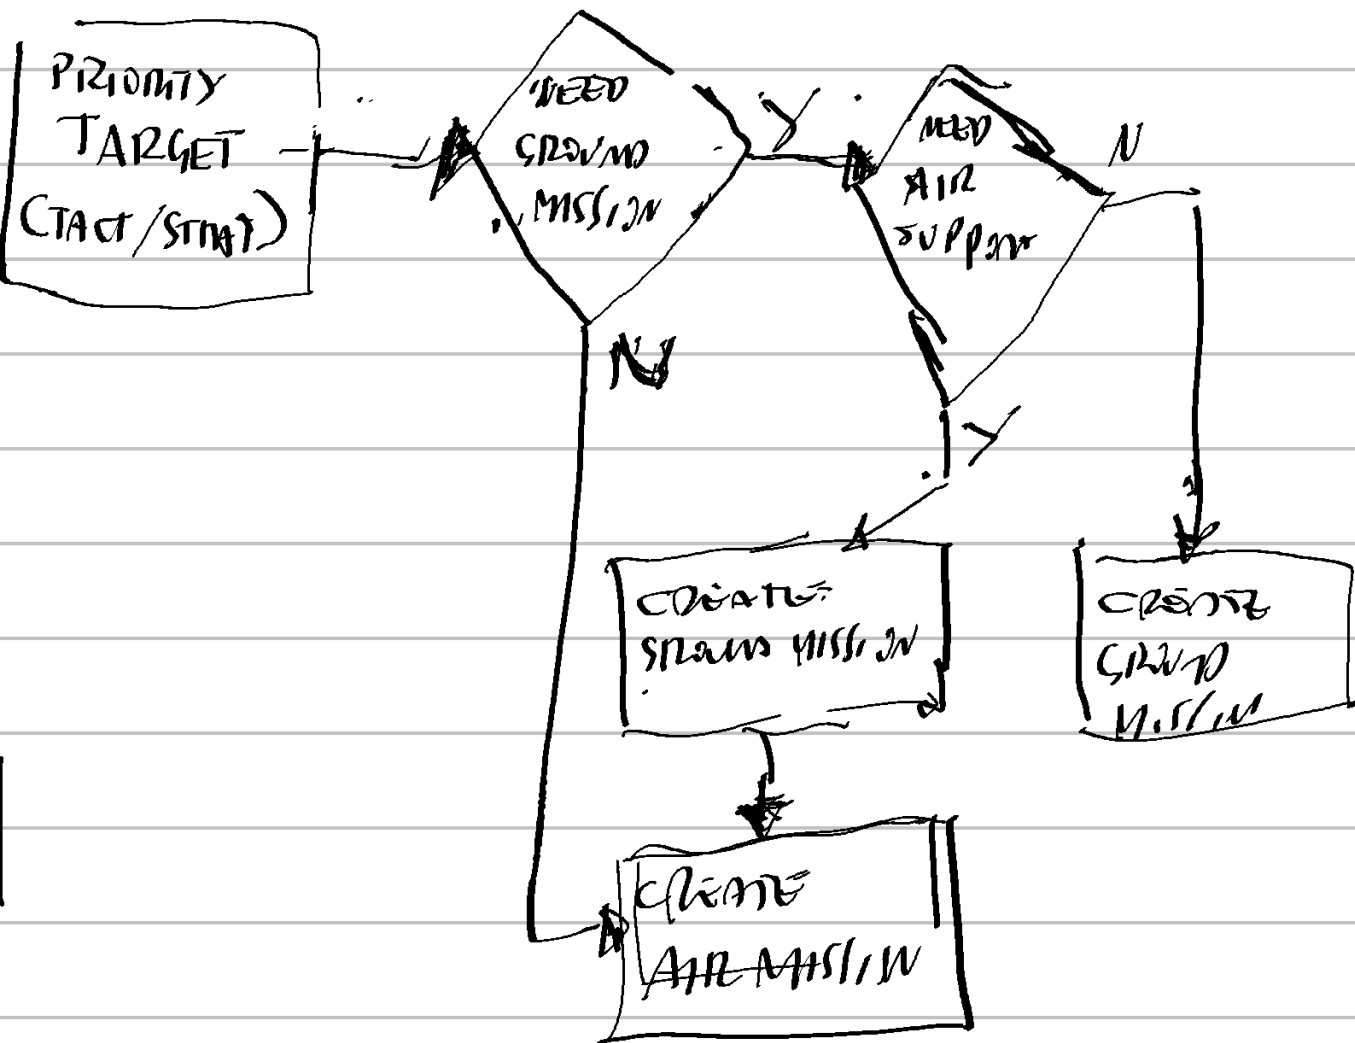 PRIORITY
TARGET
(TACT/STRAT)
NEED
GROUND
MISSION
Y
N
NEED
AIR
SUPPORT
N
Y
CREATE
GROUND MISSION
CREATE
GROUND
MISSION
CREATE
AIR MISSION